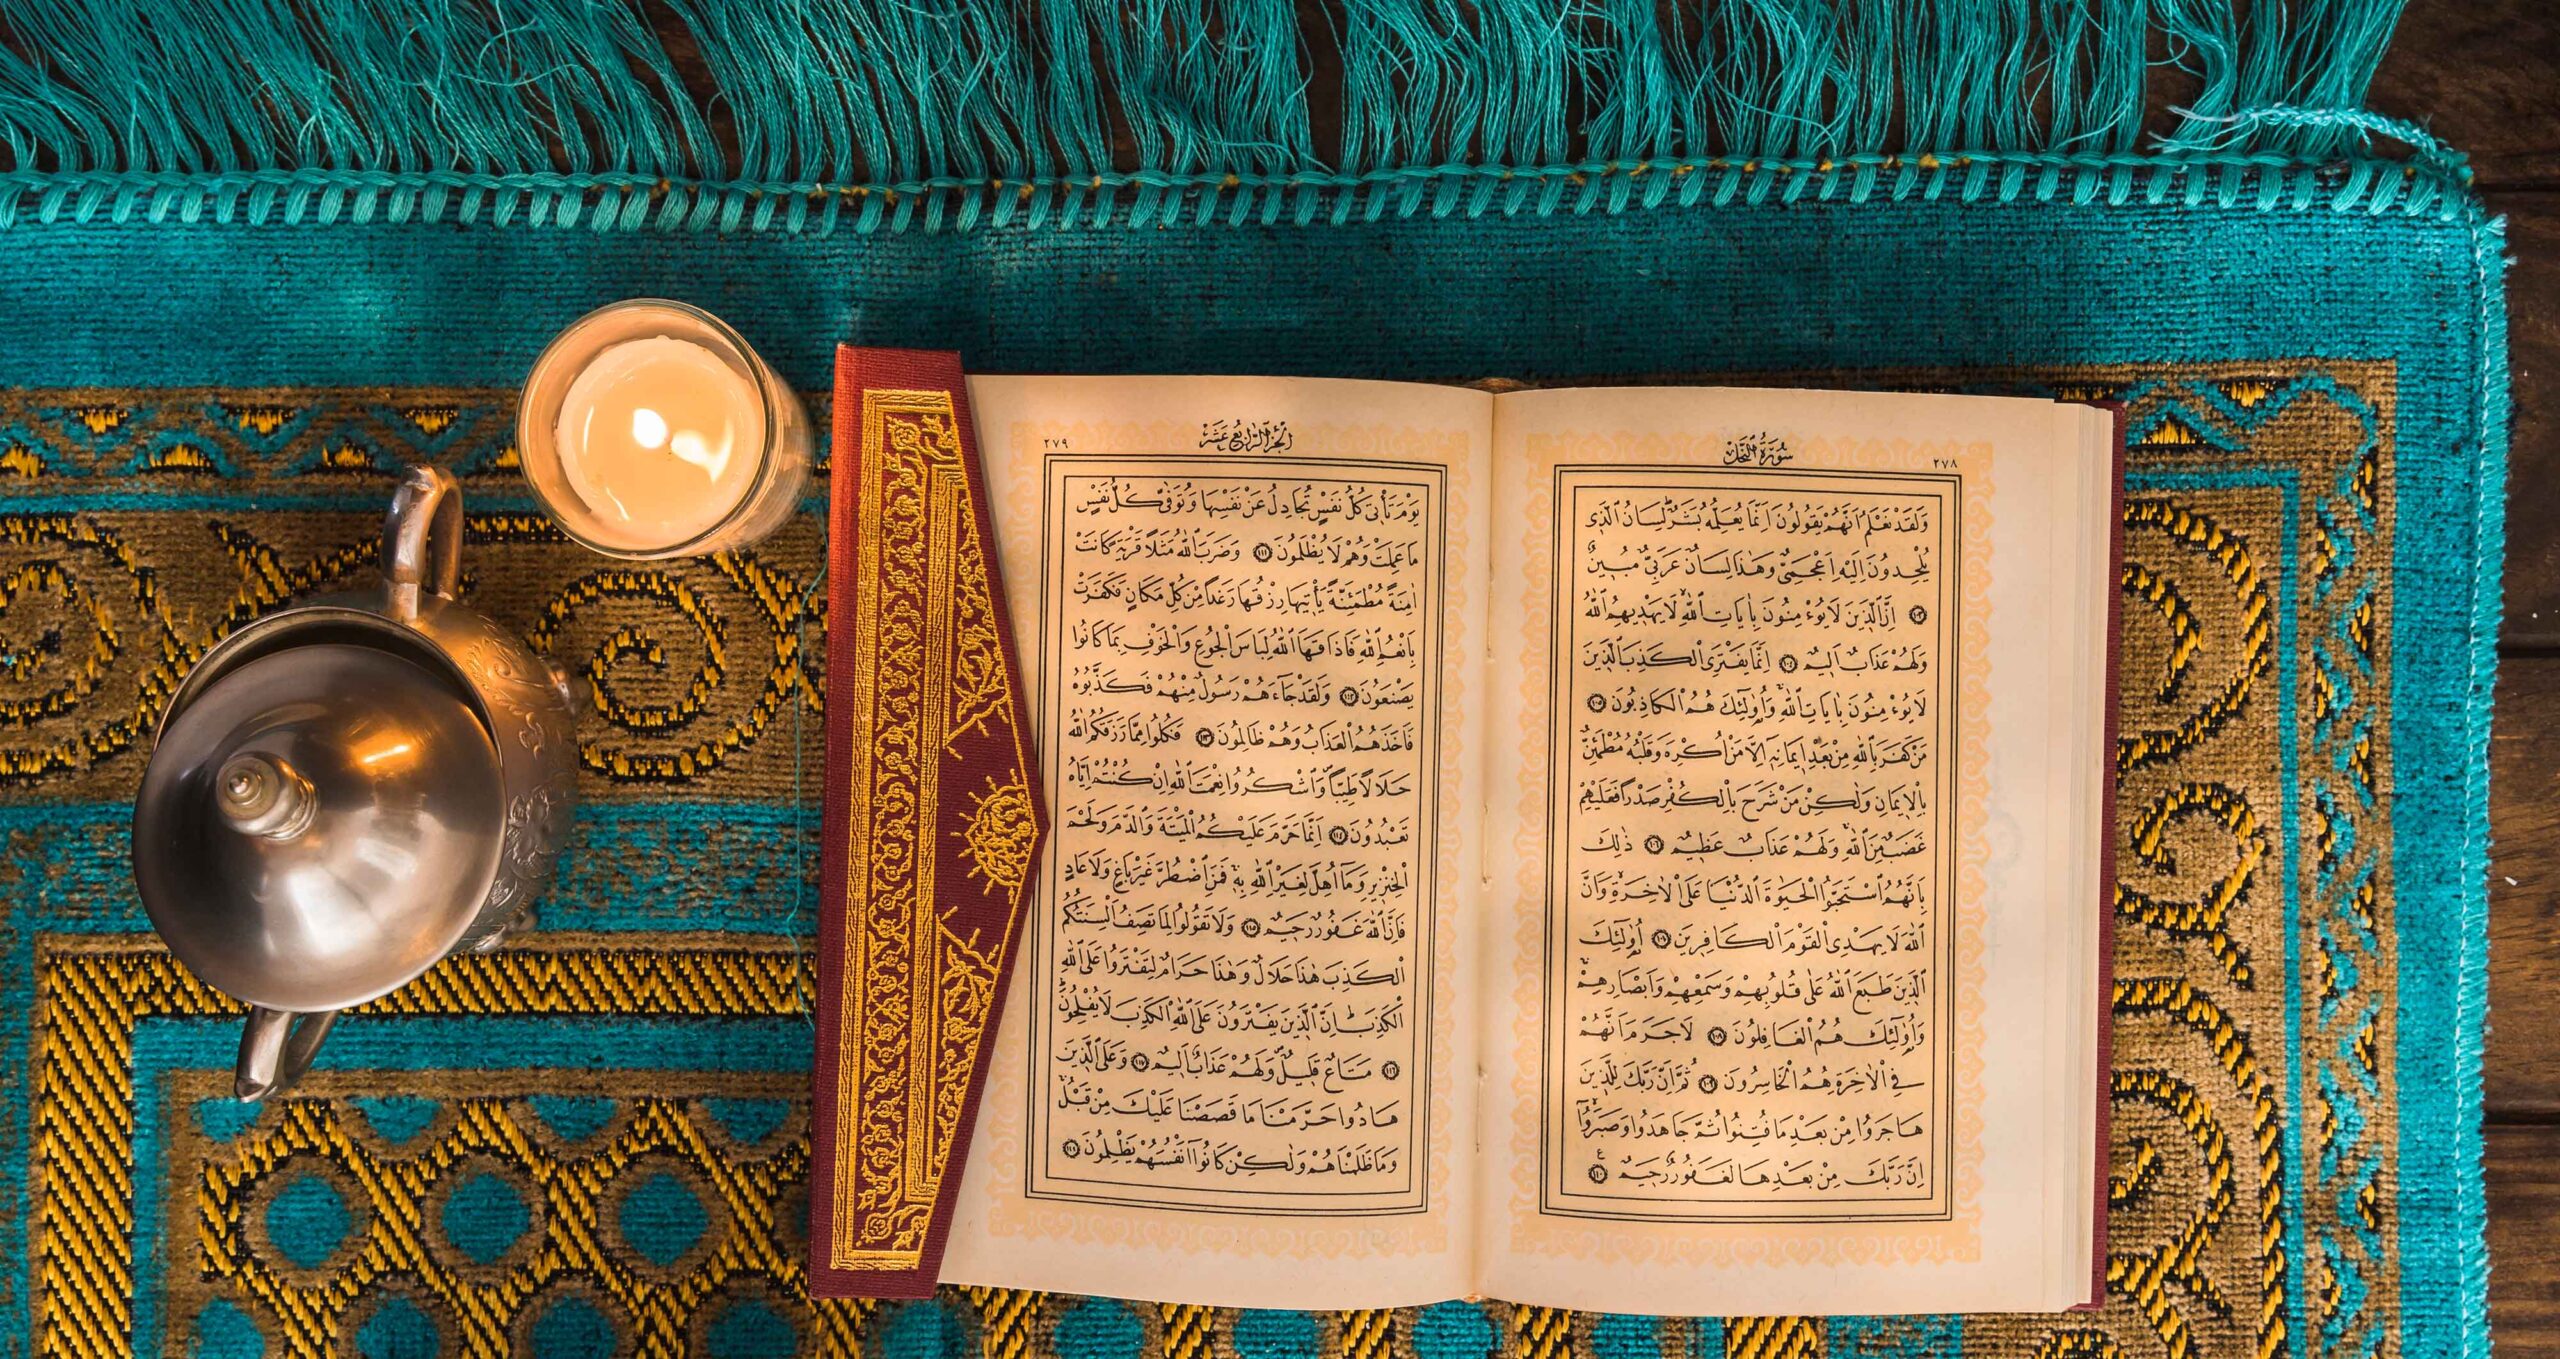 سُورَةُ النَّحْلِ
٢٧٨
وَلَقَدْ نَعْلَمُ اَنَّهُمْ يَقُولُونَ اِنَّمَا يُعَلِّمُهُ بَشَرٌۜ لِسَانُ الَّذ۪ي
يُلْحِدُونَ اِلَيْهِ اَعْجَمِيٌّ وَهٰذَا لِسَانٌ عَرَبِيٌّ مُب۪ينٌ
﴿١٠٣﴾ اِنَّ الَّذ۪ينَ لَا يُؤْمِنُونَ بِاٰيَاتِ اللّٰهِۙ لَا يَهْد۪يهِمُ اللّٰهُ
وَلَهُمْ عَذَابٌ اَل۪يمٌ ﴿١٠٤﴾ اِنَّمَا يَفْتَرِي الْكَذِبَ الَّذ۪ينَ
لَا يُؤْمِنُونَ بِاٰيَاتِ اللّٰهِۚ وَاُو۬لٰٓئِكَ هُمُ الْكَاذِبُونَ ﴿١٠٥﴾
مَنْ كَفَرَ بِاللّٰهِ مِنْ بَعْدِ ا۪يمَانِه۪ٓ اِلَّا مَنْ اُكْرِهَ وَقَلْبُهُ مُطْمَئِنٌّ
بِالْا۪يمَانِ وَلٰكِنْ مَنْ شَرَحَ بِالْكُفْرِ صَدْرًا فَعَلَيْهِمْ
غَضَبٌ مِنَ اللّٰهِۚ وَلَهُمْ عَذَابٌ عَظ۪يمٌ ﴿١٠٦﴾ ذٰلِكَ
بِاَنَّهُمُ اسْتَحَبُّوا الْحَيٰوةَ الدُّنْيَا عَلَى الْاٰخِرَةِۙ وَاَنَّ
اللّٰهَ لَا يَهْدِي الْقَوْمَ الْكَافِر۪ينَ ﴿١٠٧﴾ اُو۬لٰٓئِكَ
الَّذ۪ينَ طَبَعَ اللّٰهُ عَلٰى قُلُوبِهِمْ وَسَمْعِهِمْ وَاَبْصَارِهِمْۚ
وَاُو۬لٰٓئِكَ هُمُ الْغَافِلُونَ ﴿١٠٨﴾ لَا جَرَمَ اَنَّهُمْ
فِي الْاٰخِرَةِ هُمُ الْخَاسِرُونَ ﴿١٠٩﴾ ثُمَّ اِنَّ رَبَّكَ لِلَّذ۪ينَ
هَاجَرُوا مِنْ بَعْدِ مَا فُتِنُوا ثُمَّ جَاهَدُوا وَصَبَرُٓواۙ
اِنَّ رَبَّكَ مِنْ بَعْدِهَا لَغَفُورٌ رَح۪يمٌ ﴿١١٠﴾
اَلْجُزْءُ الرَّابِعَ عَشَرَ
٢٧٩
يَوْمَ تَأْت۪ي كُلُّ نَفْسٍ تُجَادِلُ عَنْ نَفْسِهَا وَتُوَفّٰى كُلُّ نَفْسٍ
مَا عَمِلَتْ وَهُمْ لَا يُظْلَمُونَ ﴿١١١﴾ وَضَرَبَ اللّٰهُ مَثَلًا قَرْيَةً كَانَتْ
اٰمِنَةً مُطْمَئِنَّةً يَأْت۪يهَا رِزْقُهَا رَغَدًا مِنْ كُلِّ مَكَانٍ فَكَفَرَتْ
بِاَنْعُمِ اللّٰهِ فَاَذَاقَهَا اللّٰهُ لِبَاسَ الْجُوعِ وَالْخَوْفِ بِمَا كَانُوا
يَصْنَعُونَ ﴿١١٢﴾ وَلَقَدْ جَٓاءَهُمْ رَسُولٌ مِنْهُمْ فَكَذَّبُوهُ
فَاَخَذَهُمُ الْعَذَابُ وَهُمْ ظَالِمُونَ ﴿١١٣﴾ فَكُلُوا مِمَّا رَزَقَكُمُ اللّٰهُ
حَلَالًا طَيِّبًاۖ وَاشْكُرُوا نِعْمَتَ اللّٰهِ اِنْ كُنْتُمْ اِيَّاهُ
تَعْبُدُونَ ﴿١١٤﴾ اِنَّمَا حَرَّمَ عَلَيْكُمُ الْمَيْتَةَ وَالدَّمَ وَلَحْمَ
الْخِنْز۪يرِ وَمَٓا اُهِلَّ لِغَيْرِ اللّٰهِ بِه۪ۚ فَمَنِ اضْطُرَّ غَيْرَ بَاغٍ وَلَا عَادٍ
فَاِنَّ اللّٰهَ غَفُورٌ رَح۪يمٌ ﴿١١٥﴾ وَلَا تَقُولُوا لِمَا تَصِفُ اَلْسِنَتُكُمُ
الْكَذِبَ هٰذَا حَلَالٌ وَهٰذَا حَرَامٌ لِتَفْتَرُوا عَلَى اللّٰهِ
الْكَذِبَۜ اِنَّ الَّذ۪ينَ يَفْتَرُونَ عَلَى اللّٰهِ الْكَذِبَ لَا يُفْلِحُونَۜ
﴿١١٦﴾ مَتَاعٌ قَل۪يلٌۖ وَلَهُمْ عَذَابٌ اَل۪يمٌ ﴿١١٧﴾ وَعَلَى الَّذ۪ينَ
هَادُوا حَرَّمْنَا مَا قَصَصْنَا عَلَيْكَ مِنْ قَبْلُۚ
وَمَا ظَلَمْنَاهُمْ وَلٰكِنْ كَانُٓوا اَنْفُسَهُمْ يَظْلِمُونَ ﴿١١٨﴾